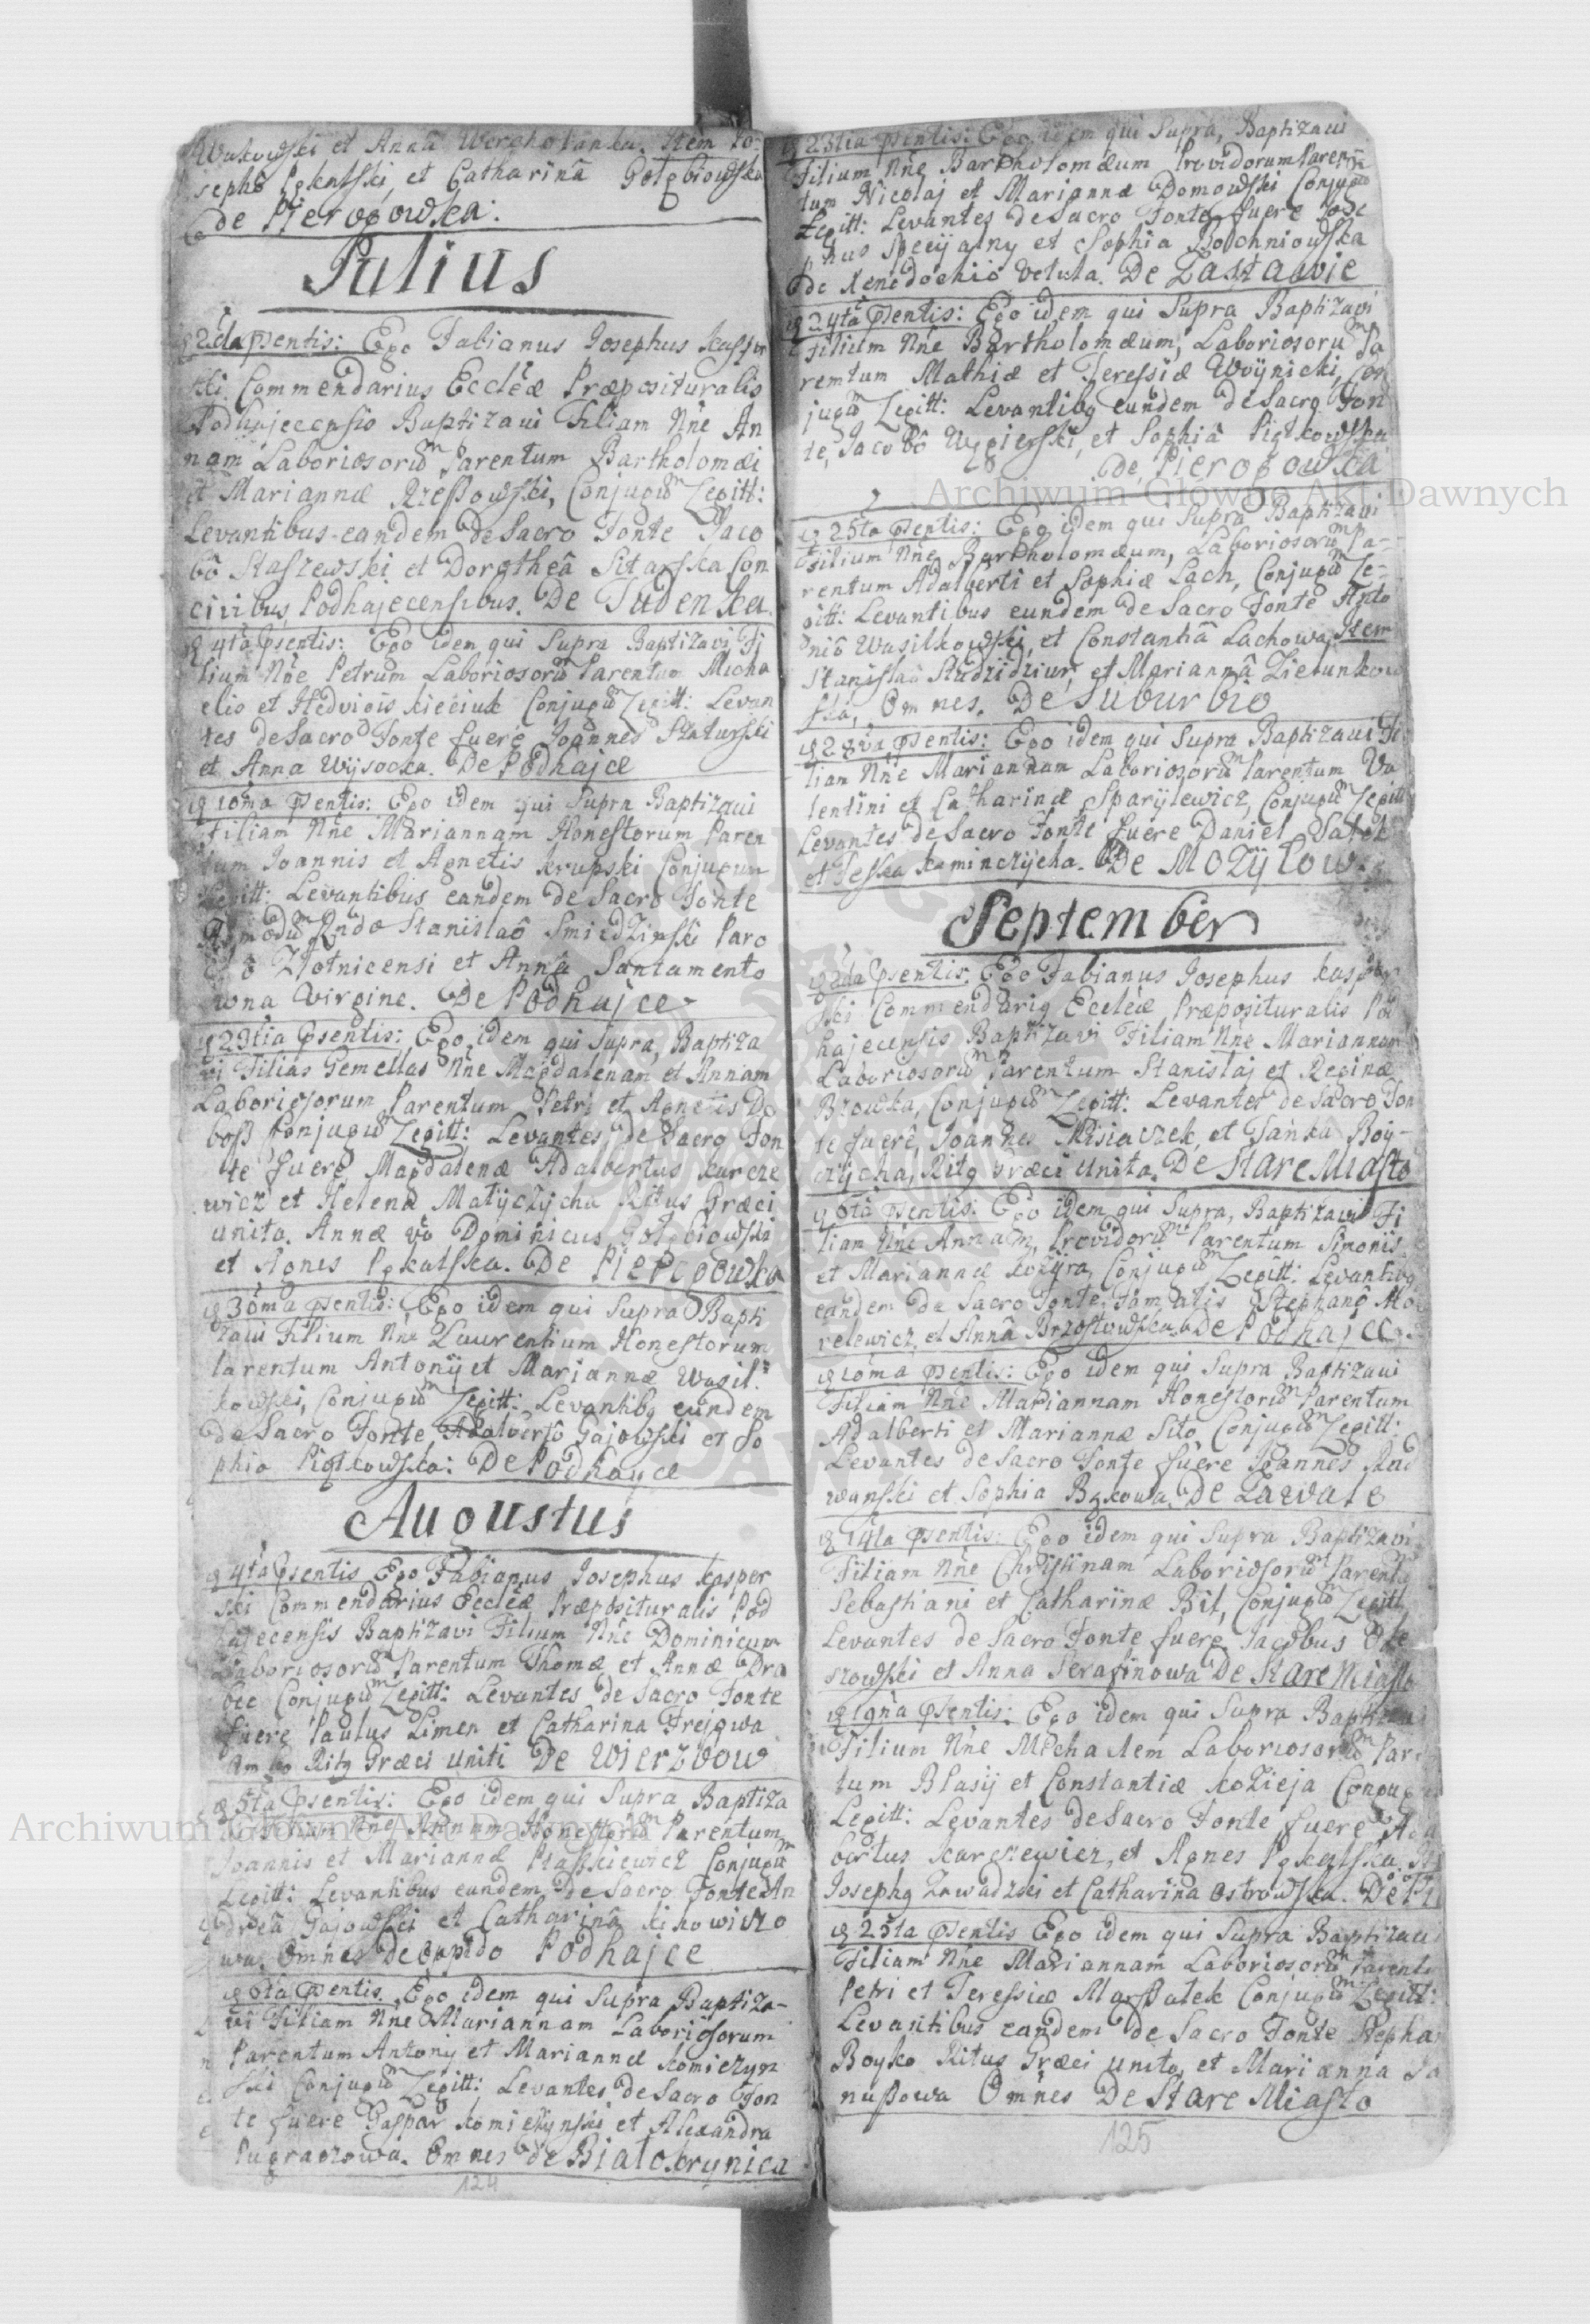 et Anna Item Jo-
sepho et Catharinâ Gołębiowska
de Pieropowka.
Julius
2da psentis: Ego Fabianus Josephus Kasper
ski Commendarius Eccleæ Præposituralis
Podhajecensis Baptizavi Filiam Nne An
nam Laboriosorum Parentum Bartholomæi
et Mariannæ Conjugum Legitt:
Levantibus eandem de Sacro Fonte Jaco
bô Staszewski et Dorotheâ Sitarska Con
civibus Podhajecensibus. De
4ta psentis: Ego idem qui Supra Baptizavi Fi
lium Nne Petrum Laboriosorum Parentum Micha
elis et Hedvigis Conjugum Legitt: Levan
tes de Sacro Fonte fuere Joannes
et Anna Wysocka. De Podhajce
10ma psentis: Ego idem qui Supra Baptizavi
Filiam Nne Mariannam Honestorum Paren
tum Joannis et Agnetis Krupski Conjugum
Legitt: Levantibus eandem de Sacro Fonte
Stanislaô Paro
Złotnicensi et Annâ Santamento
wna Virgine. De Podhajce
23tia psentis: Ego idem qui Supra Baptiza
vi Filias Gemellas Nne Magdalenam et Annam
Laboriosorum Parentum Petri et Agnetis Do
bosz Conjugum Legitt: Levantes de Sacro Fon
te fuere Magdalenæ Adalbertus Karcze
wicz et Helena Matyczycha Ritus Græci
unita. Annæ vo Dominicus Gołębiowski
et Agnes Pękalska. De Pieropowka
30ma psentis: Ego idem qui Supra Bapti
zavi Filium Nne Laurentium Honestorum
Parentum Antonij et Mariannæ Wasil=
kowski, Conjugum Legitt: Levantibq eundem
de Sacro Fonte Adalbertô Gajowski et So
phia Piątkowska: De Podhayce
Augustus
4ta psentis Ego Fabianus Josephus Kasper
ski Commendarius Eccleæ Præposituralis Pod
hajecensis Baptizavi Filium Nne Dominicum
Laboriosorum Parentum Thomæ et Annæ
Conjugum Legitt: Levantes de Sacro Fonte
fuere Paulus Limen et Catharina Frejowa
Ambo Ritq Græci Uniti De Wierzbow
5ta psentis: Ego idem qui Supra Baptiza
vi Filiam Nne Annam Honestorum Parentum
Joannis et Mariannæ Conjugum
Legitt: Levantibus eandem de Sacro Fonte An
dreâ Gajowski et Catharinâ
wa. Omnes de oppido Podhajce
6ta psentis. Ego idem qui Supra Baptiza-
vi Filiam Nne Mariannam Laboriosorum
Parentum Antonij et Mariannæ Komiczyn
ski Conjugum Legitt: Levantes de Sacro Fon
te fuere Gaspar Komiczynski et Alexandra
Omnes de Białokrynica
124
23tia psentis: Ego idem qui Supra, Baptizavi
Filium Nne Bartholomæum Providorum Paren
tum Nicolaj et Mariannæ Domowski Conjugum
Legitt: Levantes de Sacro Fonte fuere Jose
phus et Sophia Bochniowska
de Xenodochio Vetula. De Zastawie
24ta psentis: Ego idem qui Supra Baptizavi
Filium Nne Bartholomæum, Laboriosorum Pa
rentum Mathiæ et Teressiæ Woynicki, Con
jugum Legitt: Levantibq eundem de Sacro Fon
te, Jacobô Węgierski, et Sophiâ Piątkowska
de Pieropowka
25ta psentis: Ego idem qui Supra Baptizavi
Filium Nne Bartholomæum, Laboriosorum Pa-
rentum Adalberti et Sophiæ Lach, Conjugum Le-
gitt: Levantibus eundem de Sacro Fonte Anto
niô Wasilkowski, et Constantiâ Lachowa, Item
Stanislaô et Mariannâ Zielinkow
ska, Omnes. De Suburbio
28va psentis: Ego idem qui Supra Baptizavi Fi
liam Nne Mariannam Laboriosorum Parentum Va
lentini et Catharinæ Sparylewicz, Conjugum Legitt
Levantes de Sacro Fonte fuere Daniel
et Teska Kaminczycha. De Mozyłow.
September
2da psentis. Ego Fabianus Josephus Kasper
ski Commendariq Eccleæ Præposituralis Pod
hajecensis Baptizavi Filiam Nne Mariannam
Laboriosorum Parentum Stanislaj et Reginæ
Conjugum Legitt: Levantes de Sacro Fon
te fuere, Joannes Misiaczek, et Tańka Boy-
czycha, Ritq Græci Unita. De Stare Miasto
6ta psentis: Ego idem qui Supra, Baptizavi Fi
liam Nne Annam, Providorum Parentum Simonis
et Mariannæ Kozyra, Conjugum Legitt: Levantibq
eandem de Sacro Fonte, Famatis Stephanô
relewicz, et Annâ Brzostowska. de Podhajce.
10ma psentis: Ego idem qui Supra Baptizavi
Filiam Nne Mariannam Honestorum Parentum
Adalberti et Mariannæ Sito Conjugum Legitt:
Levantes de Sacro Fonte fuere Joannes Rad
wanski et Sophia Bąkowa. De Zarvale
14ta psentis: Ego idem qui Supra Baptizavi
Filiam Nne Christinam Laboriosorum Parentu
Sebastiani et Catharinæ Bil, Conjugum Legitt
Levantes de Sacro Fonte fuere, Jacobus Ole
szowski et Anna Serafinowa De Stare Miasto
19na psentis: Ego idem qui Supra Baptiza
Filium Nne Michaelem Laboriosorum Par
tum Blasij et Constantiæ Kozieja Conjug
Legitt: Levantes de Sacro Fonte fuere Adal
bertus Karczewicz, et Agnes Pękalska.
Josephq Zawadzki et Catharina Ostrowska.
25ta psentis Ego idem qui Supra Baptizavi
Filiam Nne Mariannam Laboriosorum Parent
Petri et Teressiæ Marszałek Conjugum Legitt:
Levantibus eandem de Sacro Fonte Stepha
Boyko Ritus Græci unito, et Marianna Ja
nuszowa Omnes De Stare Miasto
125
Archiwum Główne Akt Dawnych
Archiwum Główne Akt Dawnych